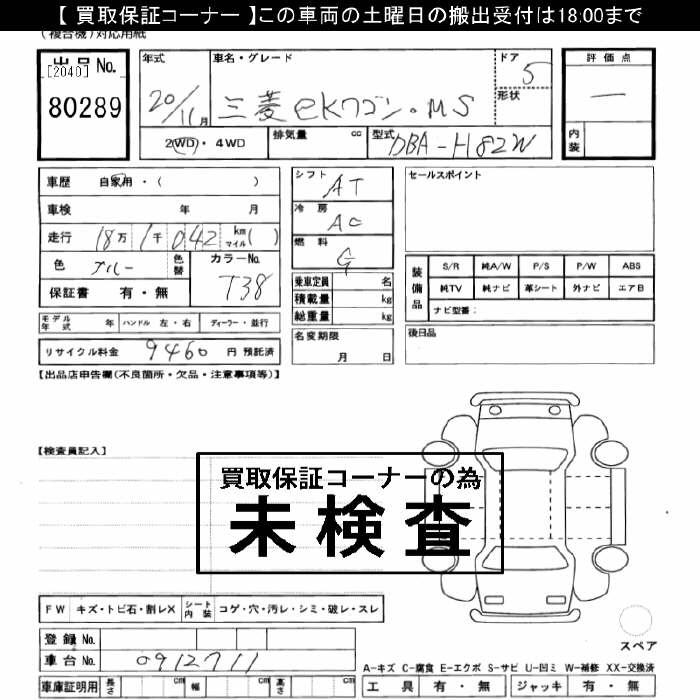 【 買取保証コーナー 】この車両の土曜日の搬出受付は18:00まで
（複合機）対応用紙
出品 No.
[2040]
80289
年式
20/11月
車名・グレード
三菱 eKワゴン・MS
ドア
5
形状
評価点
―
内装
2WD・4WD
排気量 cc
型式
DBA-H82W
車歴 自家用・( )
車検 年 月
走行 18万 1千 042 km マイル( )
色 ブルー 色替
カラーNo.
T38
保証書 有・無
モデル年式 年 ハンドル 左・右 ディーラー・並行
リサイクル料金 9460 円 預託済
シフト
AT
冷房
AC
燃料
G
乗車定員 名
積載量 kg
総重量 kg
名変期限
月 日
セールスポイント
装備品
S/R 純A/W P/S P/W ABS
純TV 純ナビ 革シート 外ナビ エアB
ナビ型番：
後日品
【出品店申告欄（不良箇所・欠品・注意事項等）】
【検査員記入】
買取保証コーナーの為
未検査
FW キズ・トビ石・割レX シート内装 コゲ・穴・汚レ・シミ・破レ・スレ
登録 No.
車台 No. 0912711
車庫証明用 長さ cm 幅 cm 高さ cm
スペア
A-キズ C-腐食 E-エクボ S-サビ U-凹ミ W-補修 XX-交換済
工具 有・無 ジャッキ 有・無